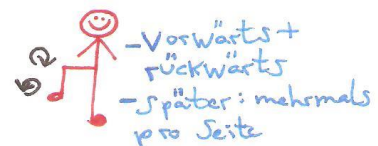 - Vorwärts +
rückwärts
- später: mehrmals
pro Seite